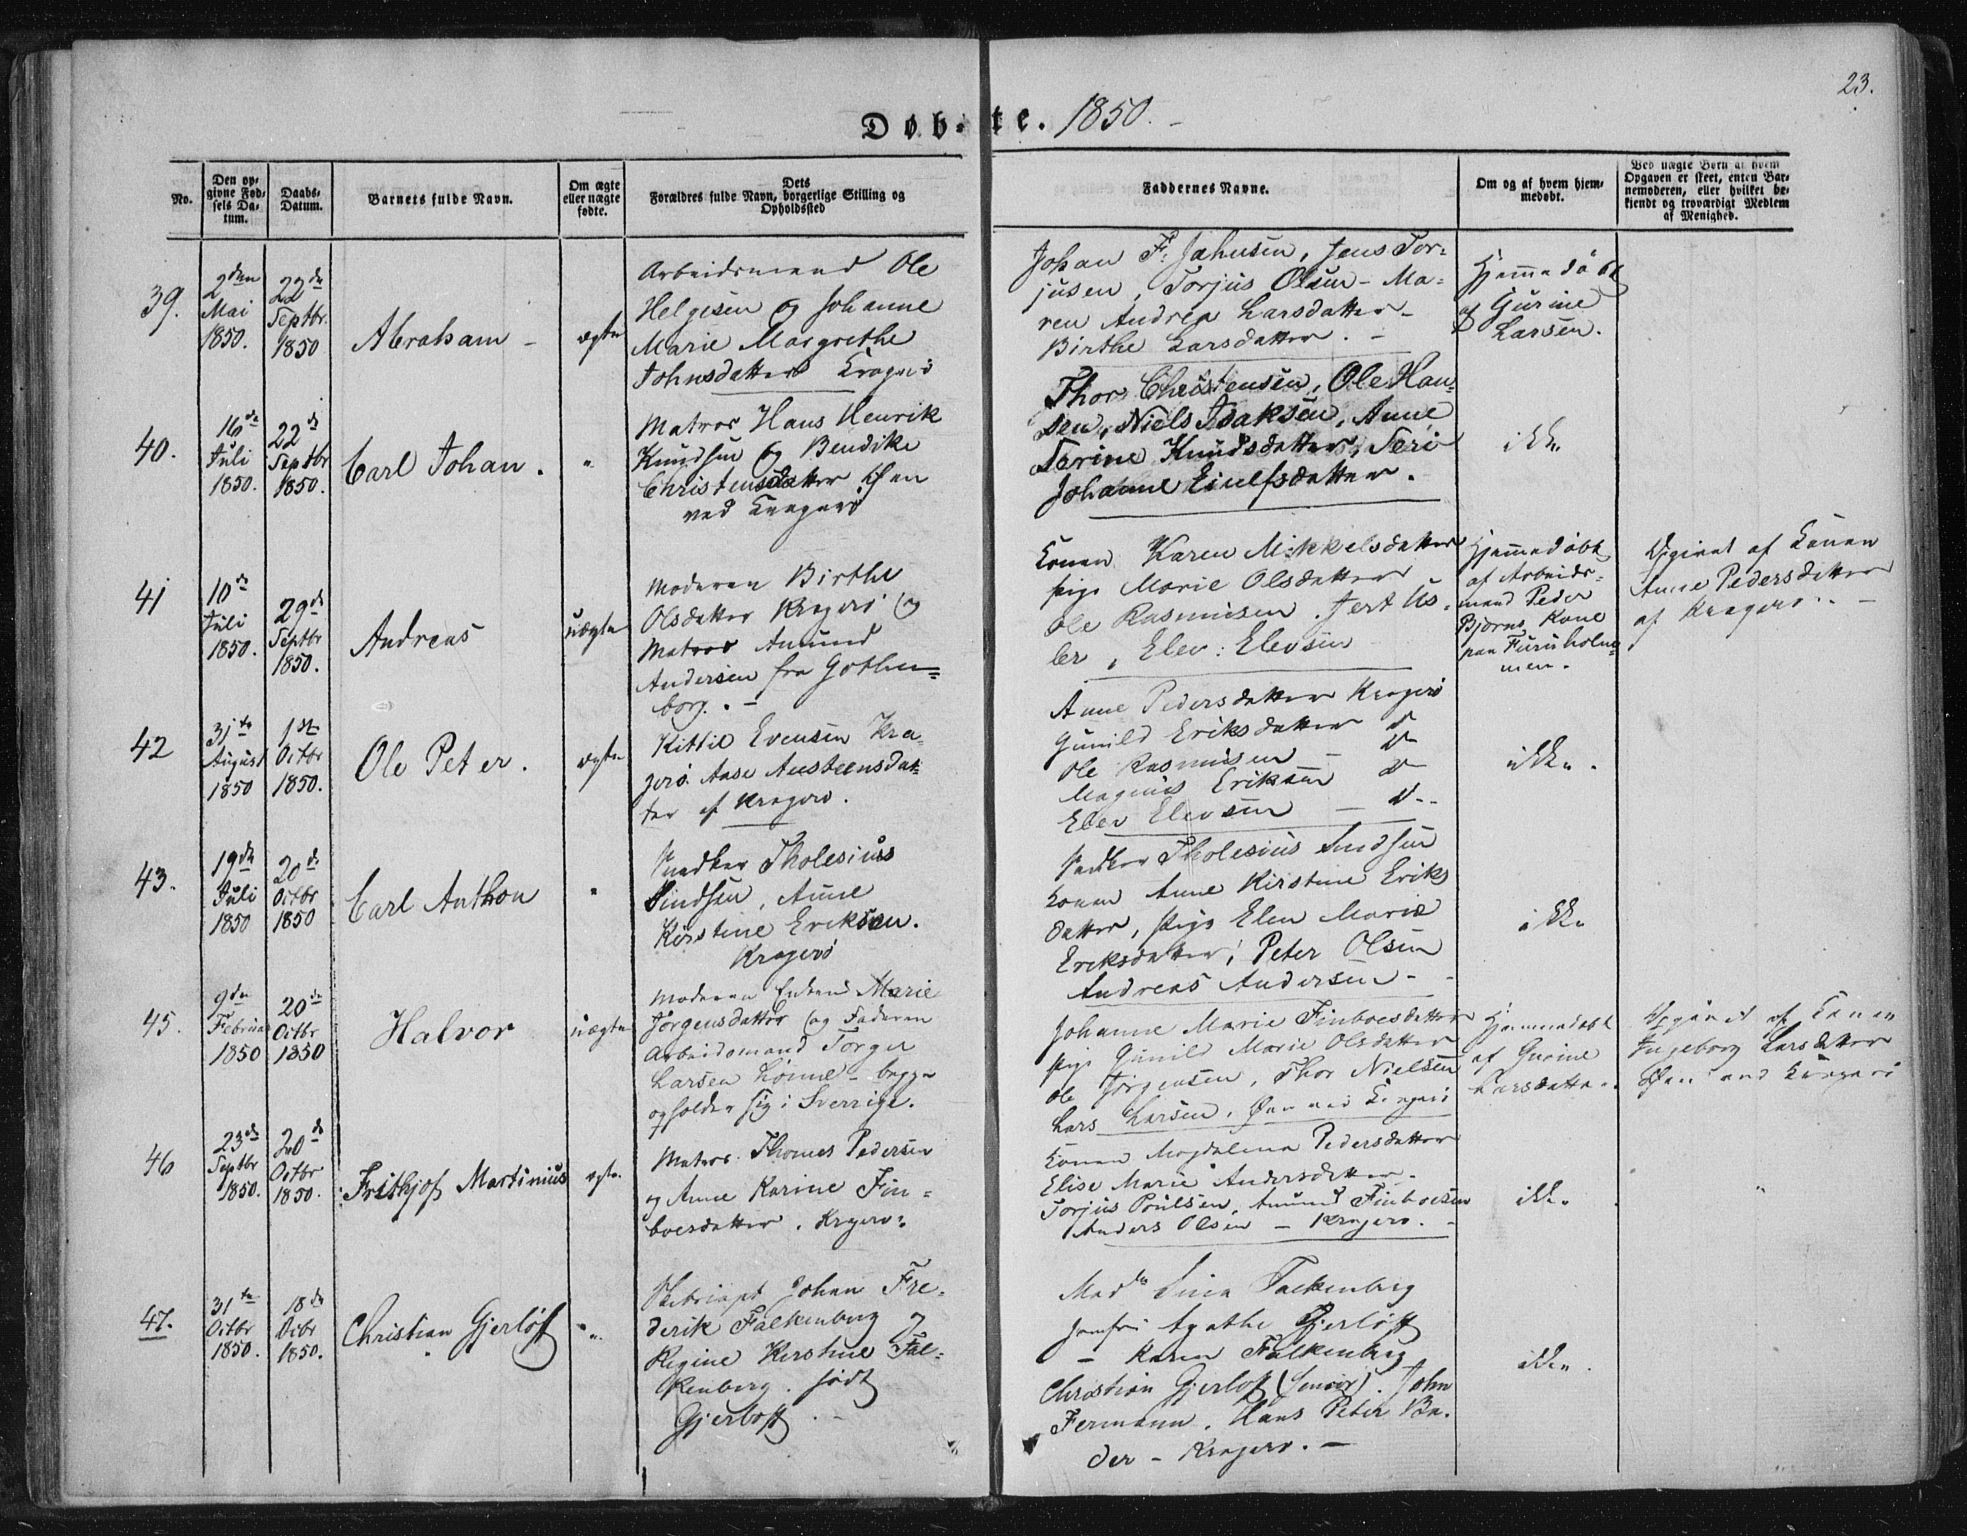 23.
Døb-te. 1850. -
No.
Den op-
givne Fød-
sels Da-
tum.
Daabs-
Datum.
Barnets fulde Navn.
Om ægte
eller uægte
fødte.
Dets
Forældres fulde Navn, borgerlige Stilling og
Opholdssted
Faddernes Navne.
Om og af hvem hjem-
medøbt.
Ved uægte Børn af hvem
Opgaven er skeet, enten Bar-
nemoderen, eller hvilket be-
kjendt og troværdigt Medlem
af Menighed.
39.
2den
Mai
1850.
22de
Septbr.
1850
Abraham -
ægte
Arbeidsmand Ole
Helgesen og Johanne
Marie Margrethe
Johnsdatter Kragerö
Johan F. Jahnsen, Jens Tor-
jusen, Torjus Olsen - Ma-
ren Andrea Larsdatter -
Birthe Larsdatter. -
Hjemmedöbt
af Gurine
Larsen.
40.
16de
Juli
1850.
22de
Septbr
1850.
Carl Johan.
"
Matros Hans Henrik
Knudsen og Bendike
Christensdatter Öen
ved Kragerö
Thor Christensen, Ole Han-
sen, Niels Isaksen, Anne
Terine Knudsdatter, Teri
Johanne Einelfsdatter.
ikke
41
10de
Juli
1850.
29de
Septbr
1850.
Andreas
uægte
Moderen Birthe
Olsdatter Kragerö og
Matros Amund
Andersen fra Gothen-
borg. -
Konen Karen Mikkelsdatter
Pige Marie Olsdatter
Ole Rasmusen. Jert Us-
ler, Elev: Elevsen
Hjemmedöbt
af Arbeids-
mand Peder
Bjørns Kone
paa Furuholm-
men.
Opgivet af Konen
Anne Pedersdatter
af Kragerö. -
42
31te
August
1850
1ste
Octbr
1850.
Ole Peter.
ægte
Kittil Evensen Kra-
gerö. Aase Austeensdat-
ter af Kragerö.
Anne Pedersdatter Kragerö
Gunild Eriksdatter do
Ole Rasmusen - do
Magnus Eriksen do
Elev Elevsen - do -
ikke.
43.
19de
Juli
1850
20de
Octbr
1850
Carl Anthon
"
Snedker Tholesius
Sindsen, Anne
Kirstine Eriksen.
Kragerö
Snedker Tholesius Sindsen
Konen Anne Kirstine Eriks
datter, Pige Elen Marie
Eriksdatter, Peter Olsen
Andreas Andersen -
ikke
45.
9de
Februar
1850
20de
Octbr
1850
Halvor
uægte
Moderen Enkend Marie
Jörgensdatter og Faderen
Arbeidsmand Torger
Larsen Lonne - begge
opholder sig i Sverrige.
Johanne Marie Finboesdatter
Pige Gunild Marie Olsdatter
Ole Jörgensen, Thor Nielsen
Lars Larsen, Öen ved Kragerö
Hjemmedöbt
af Gurine
Larsdatter.
Opgivet af Konen
Ingeborg Larsdatter
Öen ved Kragerö
46
23de
Septbr
1850.
20de
Octbr
1850.
Frithjof Martinius
ægte.
Matros Thomes Pedersen
og Anne Karine Fin-
boesdatter. Kragerö.
Konen Magdalena Pedersdatter
Elise Marie Andersdatter -
Torjus Poulsen, Amund Finboesen
Anders Olsen - Kragerö. -
ikke
"
47.
31te
Octbr
1850.
18de
Dcbr
1850.
Christian Gjerlöff
"
Skibscapt Johan Fre-
derik Falkenberg og
Regine Kirstine Fal-
kenberg. född
Gjerlöff. -
Made Lina Falkenberg
Jomfru Agathe Gjerlöff
- Karen Falkenberg
Christian Gjerlöff (Senior). John
Fermann. Hans Peter Ba-
der - Kragerö. -
ikke.